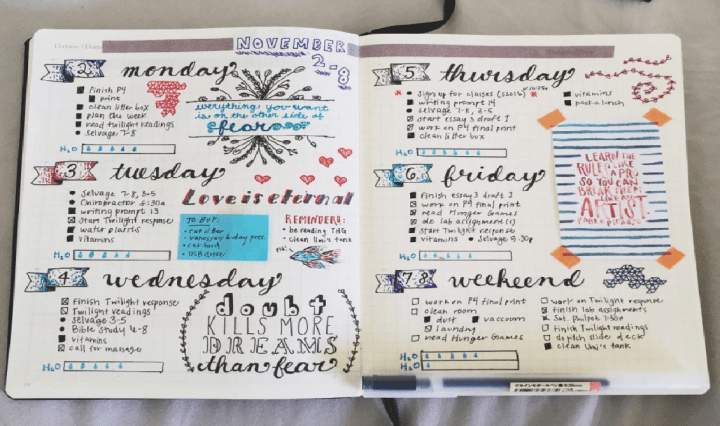 NOVEMBER
2-8
2 monday
Finish P4
print
clean litter box
plan the week
read twilight readings
selvage 7-8
H2O
everything you want
is on the other side of
fear
3 tuesday
selvage 7-8, 3-5
chiropractor 5:30a
writing prompt 13
start Twilight response
water plants
vitamins
H2O
Love is eternal
TO BUY:
cat litter
cat food
USB driver
REMINDERS:
be reading TNG
clean Uni's tank
4 wednesday
finish Twilight response
Twilight readings
selvage 3-5
Bible Study 6-8
vitamins
call for massage
H2O
doubt
KILLS MORE
DREAMS
than fear
5 thursday
sign up for classes
writing prompt 14
selvage 7-8, 3-5
start essay 3 draft 1
work on P4 final print
clean litter box
vitamins
pack a lunch
H2O
LEARN THE
RULES LIKE
A PRO,
SO YOU CAN
BREAK THEM
LIKE AN
ARTIST.
PABLO PICASSO
6 friday
finish essay 3 draft 1
work on P4 final print
read Hunger Games
do lab assignment (1)
start Twilight response
vitamins
selvage 5:30p
H2O
7-8 weekend
work on P4 final print
clean room
dust
vaccuum
laundry
read Hunger Games
work on Twilight response
finish lab assignments
finish Twilight readings
clean Uni's tank
H2O
H2O